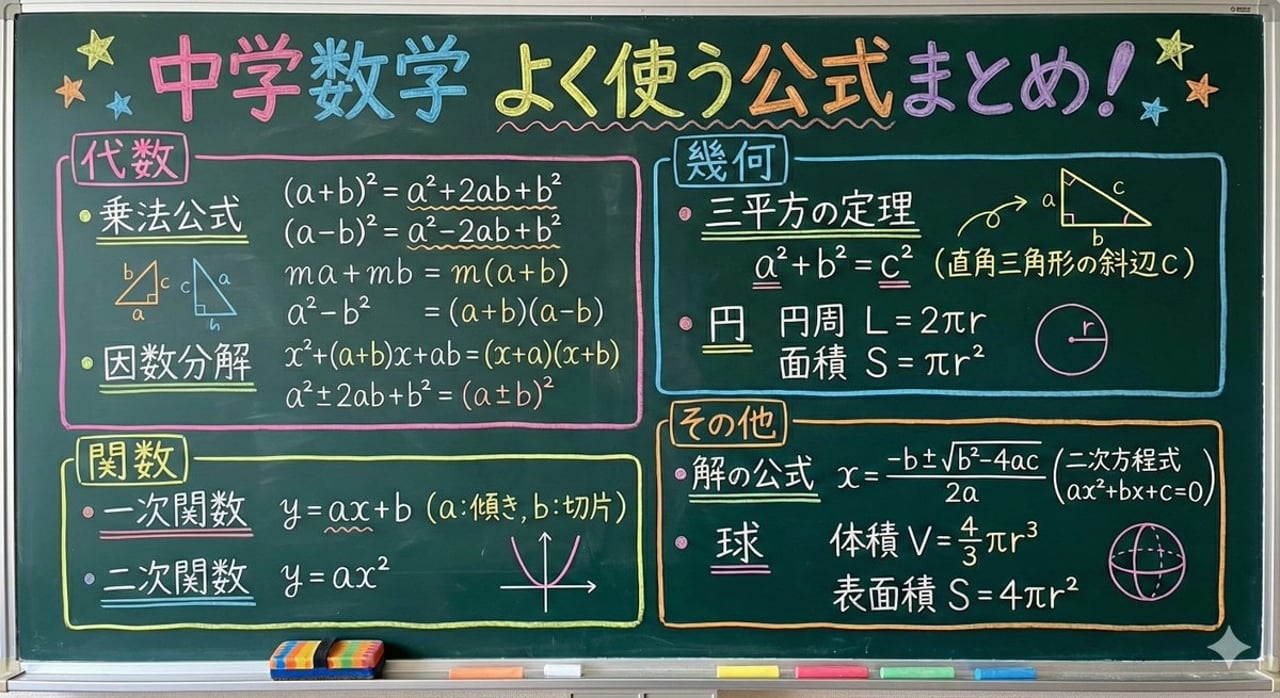 中学数学 よく使う公式まとめ!
代数
・乗法公式
(a+b)² = a²+2ab+b²
(a-b)² = a²-2ab+b²
ma+mb = m(a+b)
a²-b² = (a+b)(a-b)
b c a
c a h
・因数分解
x²+(a+b)x+ab=(x+a)(x+b)
a²±2ab+b² = (a±b)²
幾何
・三平方の定理
a²+b²=c² (直角三角形の斜辺c)
a c b
・円 円周 L=2πr
面積 S=πr²
r
関数
・一次関数 y=ax+b (a:傾き, b:切片)
・二次関数 y=ax²
その他
・解の公式 x= -b±√b²-4ac / 2a (二次方程式 ax²+bx+c=0)
・球 体積 V=4/3πr³
表面積 S=4πr²